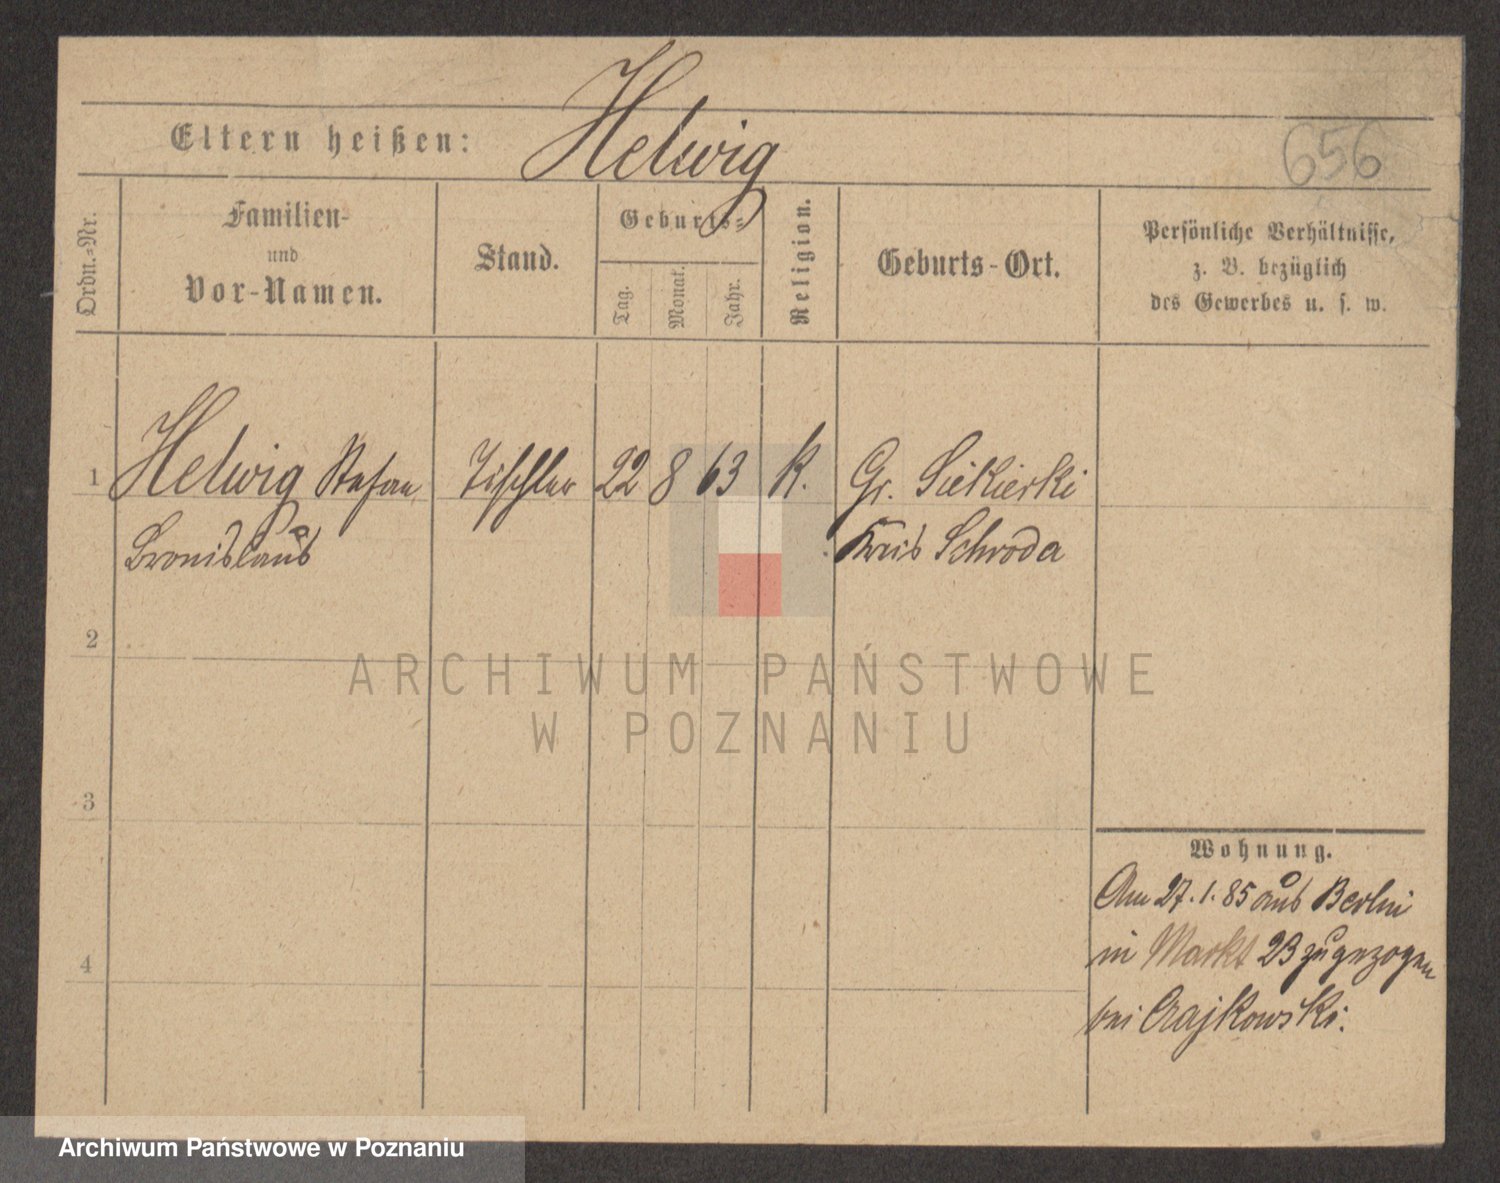 Helwig
Eltern heißen:
656
Ordn.=Nr.
Familien-
und
Vor-Namen.
Stand.
Geburts=
Tag.
Monat.
Jahr.
Religion.
Geburts-Ort.
Persönliche Verhältnisse,
z. B. bezüglich
des Gewerbes u. s. w.
1 Helwig Stefan Tischler 22 8 63 K. Gr. Siekierki
Bronislaus Kreis Schroda
2
ARCHIWUM PAŃSTWOWE
W POZNANIU
3
Wohnung.
Am 27.1.85 aus Berlin
in Markt 23 zugezogen
4
bei Czajkowski.
Archiwum Państwowe w Poznaniu